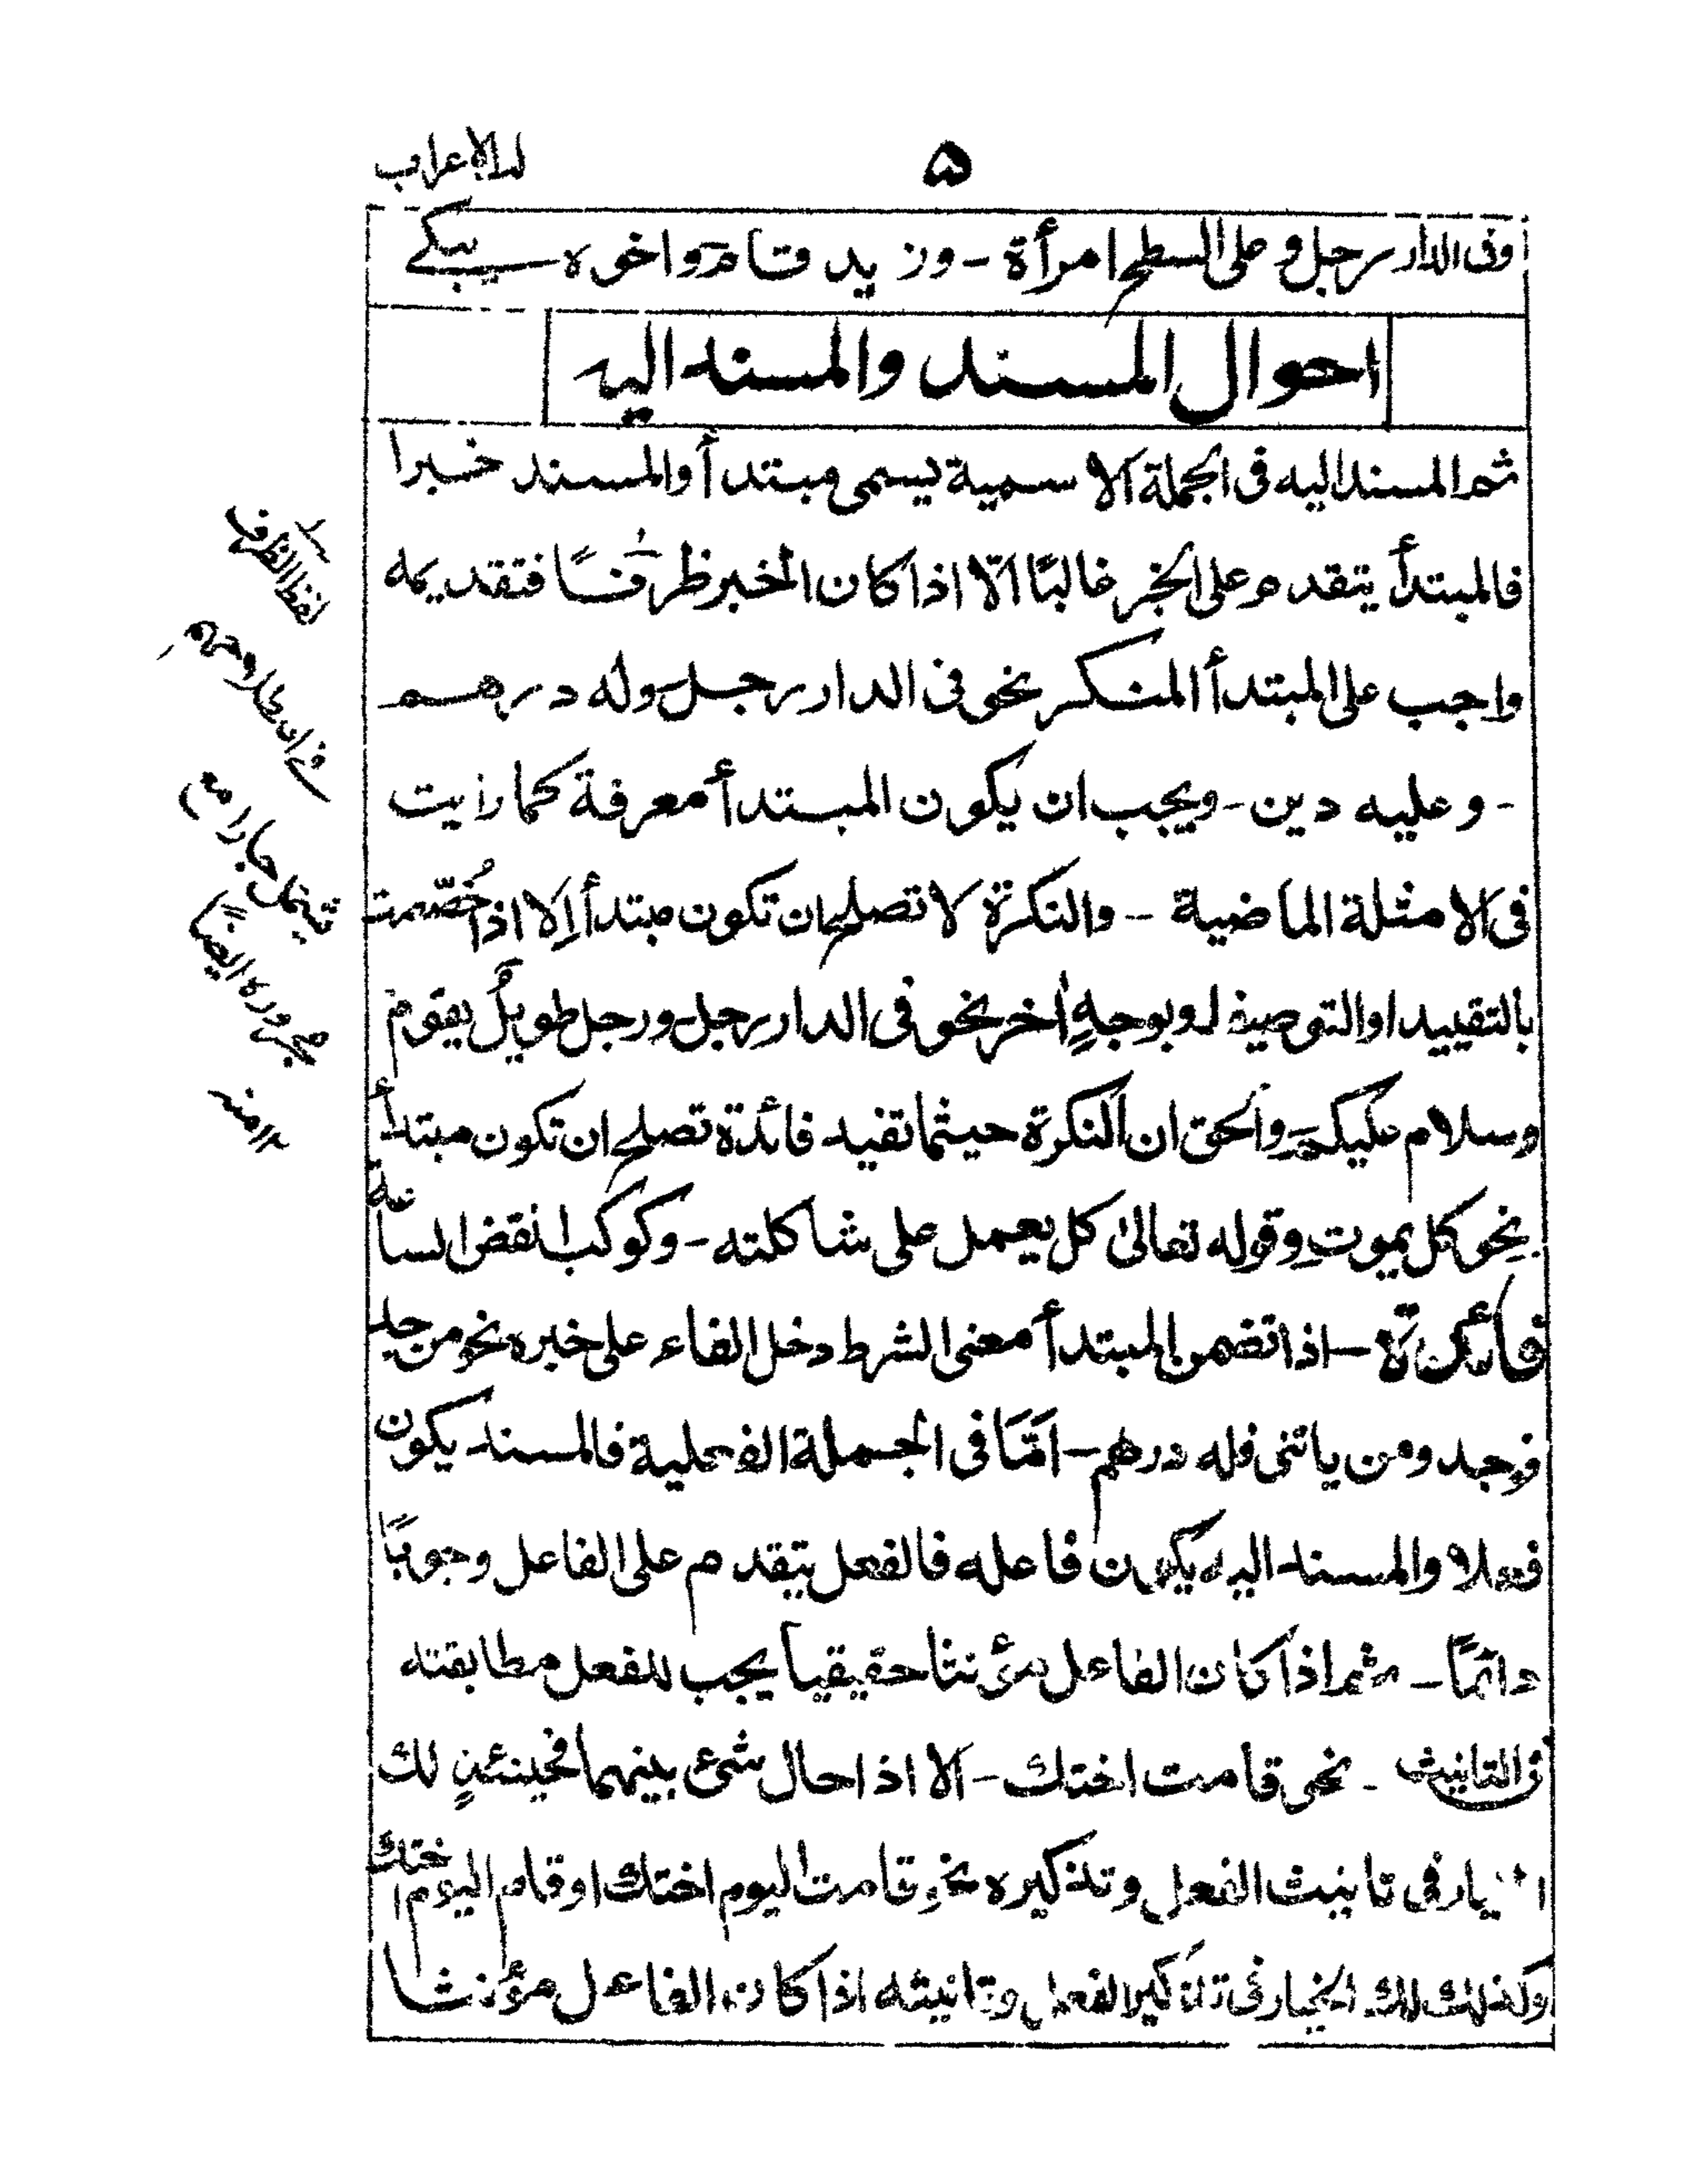 ۵
وفى الدار رجل وعلى السطح امرأة - وزيد قام واخوه يبكے
احوال المسند والمسند اليه
ثم المسند اليه فى الجملة الاسمية يسمى مبتدأ والمسند خبرا
فالمبتدأ يتقدم على الخبر غالبًا الّا اذا كان الخبر ظرفًا فتقديمه
واجب على المبتدأ المنكر نحو فى الدار رجل وله درهم
- وعليه دين - ويجب ان يكون المبتدأ معرفة كما رايت
فى الامثلة الماضية - والنكرة لا تصلح ان تكون مبتدأ إلا اذا خُصّصت
بالتقييد او التوصيف او بوجهٍ اٰخر نحو فى الدار رجل ورجل طويلٌ يقوم
وسلام عليكم - والحق ان النكرة حيثما تفيد فائدة تصلح ان تكون مبتدأ
نحو كل يموت وقوله تعالىٰ كل يعمل على شاكلته - وكوكب انقض الساعة
فائدة - اذا تضمن المبتدأ معنى الشرط دخل الفاء على خبره نحو من جد
فوجد ومن ياتنى فله درهم - امّا فى الجملة الفعلية فالمسند يكون
فعلا والمسند اليه يكون فاعله فالفعل يتقدم على الفاعل وجوبًا
دائمًا - ثم اذا كان الفاعل مؤنثا حقيقيا يجب للفعل مطابقته
فى التانيث - نحو قامت اختك - الا اذا حال شئ بينهما فحينئذٍ لك
الخيار فى تانيث الفعل وتذكيره نحو قامت اليوم اختك او قام اليوم اختك
وكذلك لك الخيار فى تذكير الفعل وتانيثه اذا كان الفاعل مؤنثا
لفظ الظرف
يشمل جارا مع
مجروره ايضاً
۱۲ منه